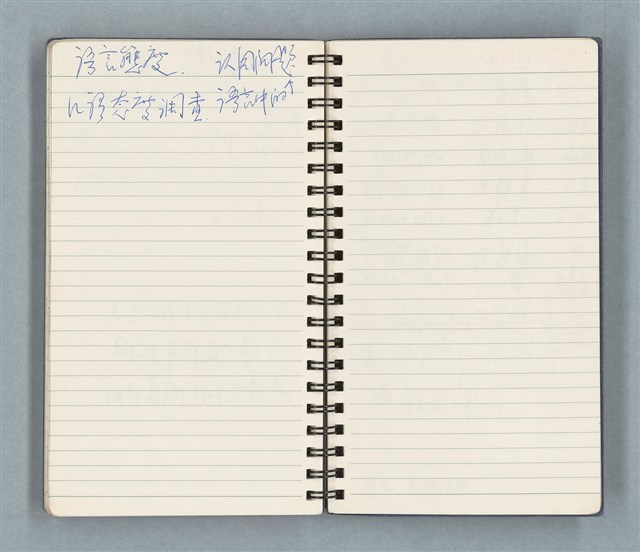 语言態度. 认同问题
心语态度调查. 语言中的↑